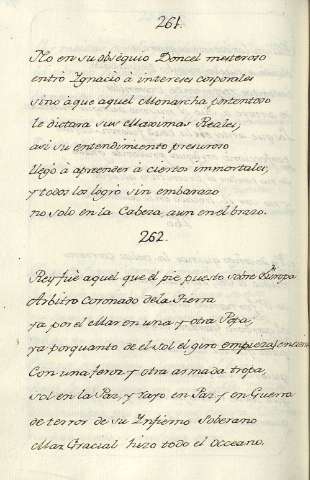 261.
No en su obsequio Doncel mesteroso
entró Ygnacio à intereses corporales
sino à que aquel Monarcha portentoso
le dictara sus Maximas Reales,
asi su entendimiento presuroso
llegò à apreender à ciertos immortales,
y todos los logró sin embarazo
no solo en la Cabeza, aun en el brazo.
262.
Rey fuè aquel que el pie puesto sobre Europa
Arbitro Coronado de la Tierra
ya por el Mar en una y otra Popa,
ya por quanto de el Sol el giro empieza,
Con una feroz y otra armada tropa,
sol en la Paz, y rayo en Paz y en Guerra
de terror de su Infierno Soberano
Mar Glacial hizo todo el Occeano.